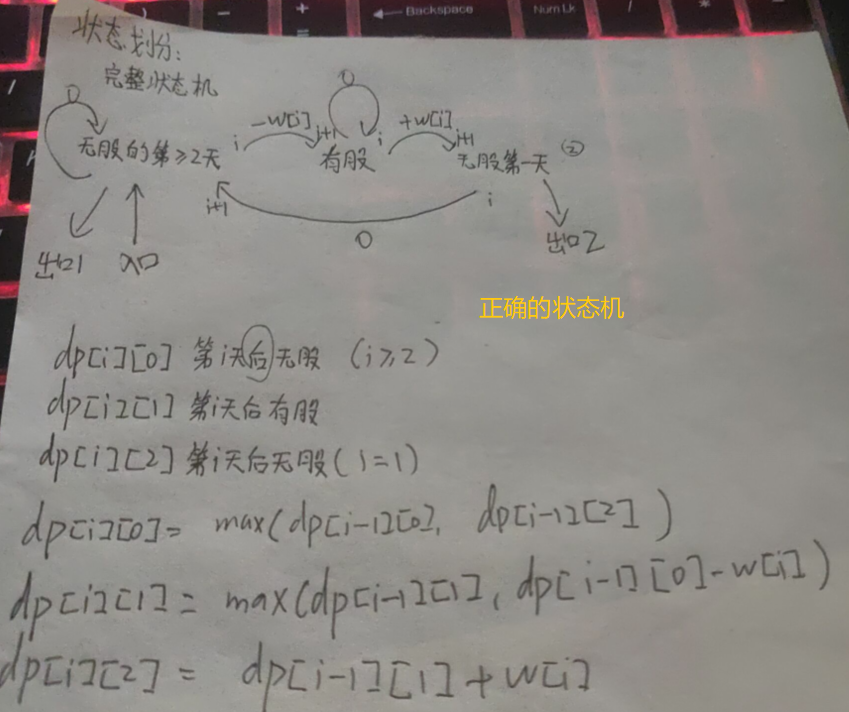 Backspace
Num Lk
状态划分:
完整状态机
0
0
-w[i]
+w[i]
无股的第≥2天
i
i+1
有股
i
i+1
无股第一天
②
i+1
i
0
出口1
入口
出口2
正确的状态机
dp[i][0] 第i天后无股 (i≥2)
dp[i][1] 第i天后有股
dp[i][2] 第i天后无股(i=1)
dp[i][0]= max(dp[i-1][0], dp[i-1][2])
dp[i][1]= max(dp[i-1][1], dp[i-1][0]-w[i])
dp[i][2]= dp[i-1][1]+w[i]